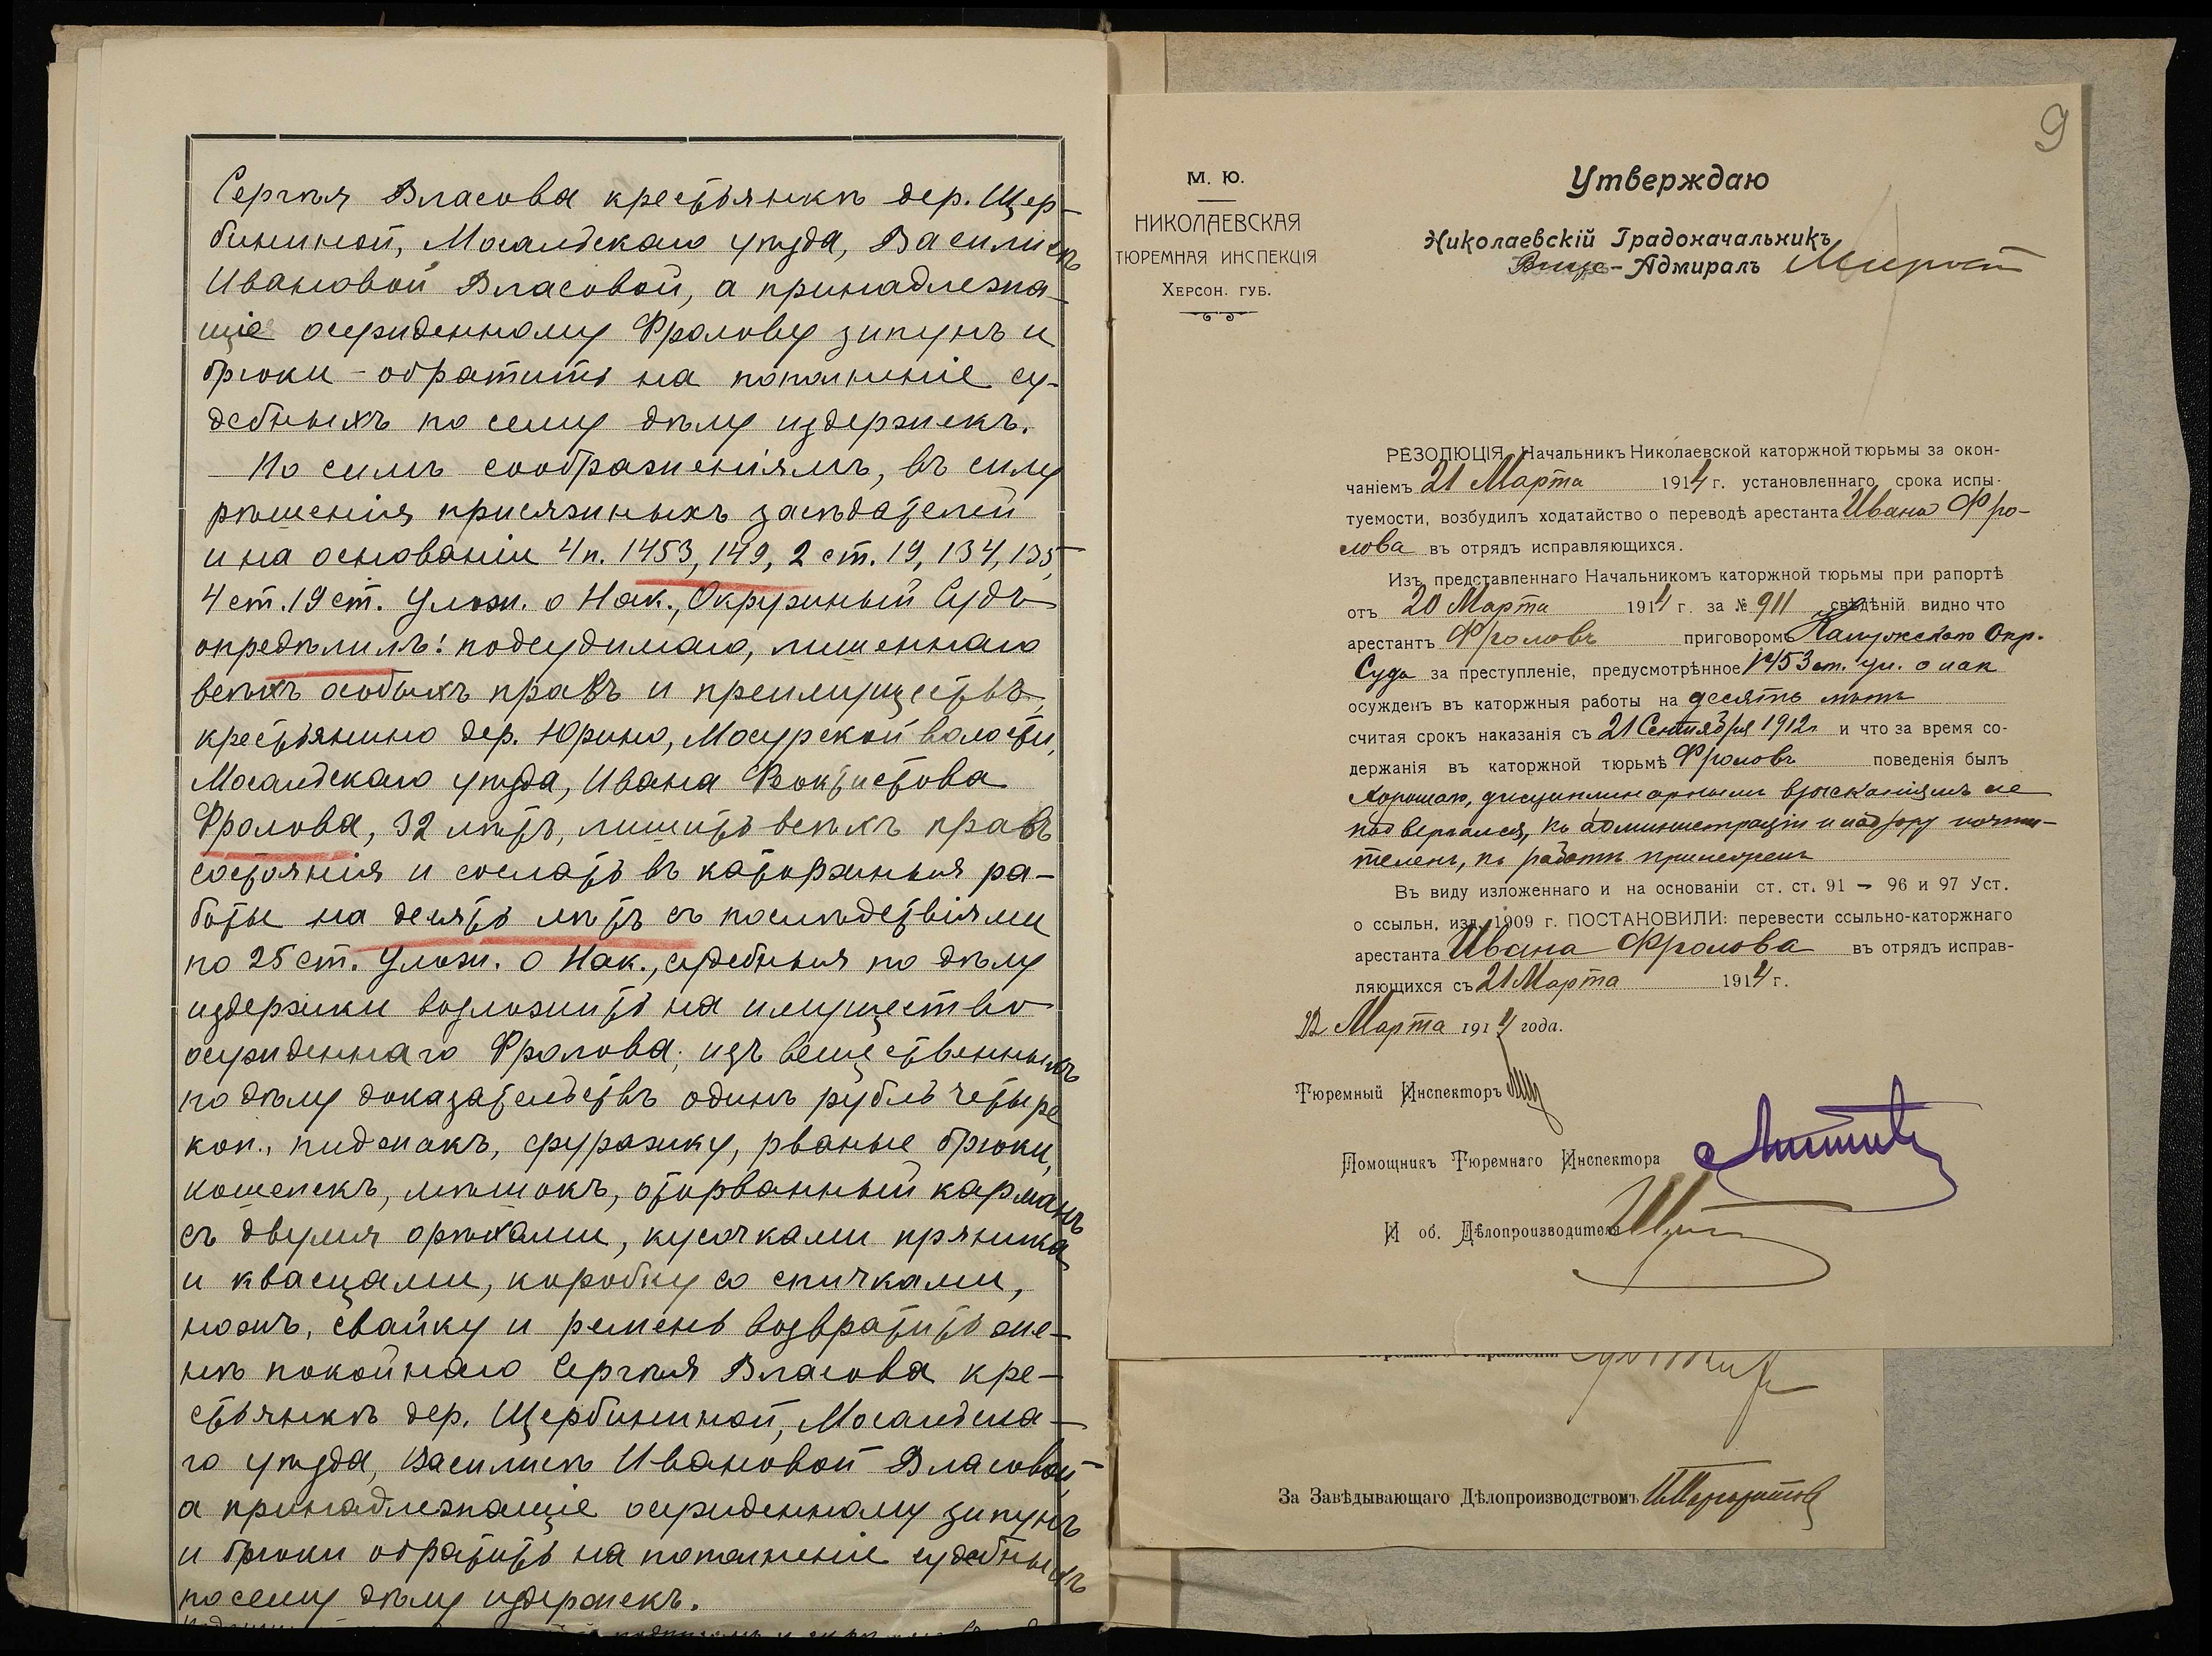 Сергѣя Власова крестьянкѣ дер. Щер-
бининой, Мосальскаго уѣзда, Василисѣ
Ивановой Власовой, а принадлежа-
щіе осужденному Фролову зипунъ и
брюки - обратить на пополненіе су-
дебныхъ по сему дѣлу издержекъ.
По симъ соображеніямъ, въ силу
рѣшенія присяжныхъ засѣдателей
и на основаніи 4 п. 1453, 149, 2 ст. 19, 134, 135,
4 ст. 19 ст. Улож. о Нак., Окружный Судъ
опредѣлилъ: подсудимаго, лишеннаго
всѣхъ особыхъ правъ и преимуществъ,
крестьянина дер. Юрино, Мосурской волости,
Мосальскаго уѣзда, Ивана
Фролова, 32 лѣтъ, лишить всѣхъ правъ
состоянія и сослать въ каторжныя ра-
боты на десять лѣтъ съ послѣдствіями
по 25 ст. Улож. о Нак., судебныя по дѣлу
издержки возложить на имущество
осужденнаго Фролова; изъ вещественныхъ
по дѣлу доказательствъ одинъ рубль четыре
коп., пиджакъ, фуражку, рваные брюки,
кошелекъ, мѣшокъ, оторванный карманъ
съ двумя орѣхами, кусочками пряника
и квасцами, коробку со спичками,
ножъ, свайку и ремень возвратить же-
нѣ покойнаго Сергѣя Власова кре-
стьянкѣ дер. Щербининой, Мосальска-
го уѣзда, Василисѣ Ивановой Власовой,
а принадлежащіе осужденному зипунъ
и брюки обратить на пополненіе судебныхъ
по сему дѣлу издержекъ.
9
М. Ю.
НИКОЛАЕВСКАЯ
ТЮРЕМНАЯ ИНСПЕКЦІЯ
ХЕРСОН. ГУБ.
Утверждаю
Николаевскій Градоначальникъ
Вице-Адмиралъ
РЕЗОЛЮЦІЯ. Начальникъ Николаевской каторжной тюрьмы за окон-
чаніемъ 21 Марта 1914 г. установленнаго срока испы-
туемости, возбудилъ ходатайство о переводѣ арестанта Ивана Фро-
лова въ отрядъ исправляющихся.
Изъ представленнаго Начальникомъ каторжной тюрьмы при рапортѣ
отъ 20 Марта 1914 г. за № 911 свѣдѣній видно что
арестантъ Фроловъ приговоромъ Калужскаго Окр.
Суда за преступленіе, предусмотрѣнное 1453 ст. ул. о нак
осужденъ въ каторжныя работы на десять лѣтъ
считая срокъ наказанія съ 21 Сентября 1912 г. и что за время со-
держанія въ каторжной тюрьмѣ Фроловъ поведенія былъ
хорошаго, дисциплинарнымъ взысканіямъ не
подвергался, къ администраціи и надзору почти-
теленъ, къ работѣ прилеженъ
Въ виду изложеннаго и на основаніи ст. ст. 91 - 96 и 97 Уст.
о ссыльн. изд. 1909 г. ПОСТАНОВИЛИ: перевести ссыльно-каторжнаго
арестанта Ивана Фролова въ отрядъ исправ-
ляющихся съ 21 Марта 1914 г.
22 Марта 1914 года.
Тюремный Инспекторъ
Помощникъ Тюремнаго Инспектора
И об. Дѣлопроизводителя
За Завѣдывающаго Дѣлопроизводствомъ